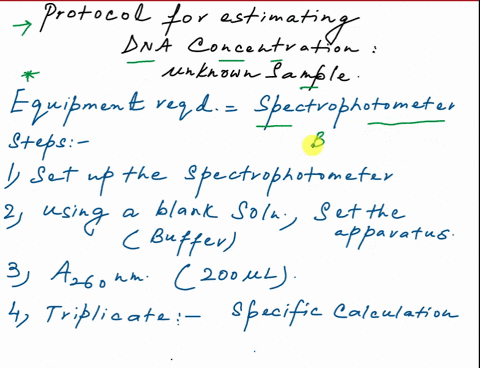 → Protocol for estimating
DNA Concentration:
* unknown Sample.
Equipment reqd. = Spectrophotometer
Steps:-
B
1, Set up the Spectrophotometer
2, using a blank Soln., Set the
(Buffer) apparatus.
3, A260nm. (200μL).
4, Triplicate:- Specific Calculation